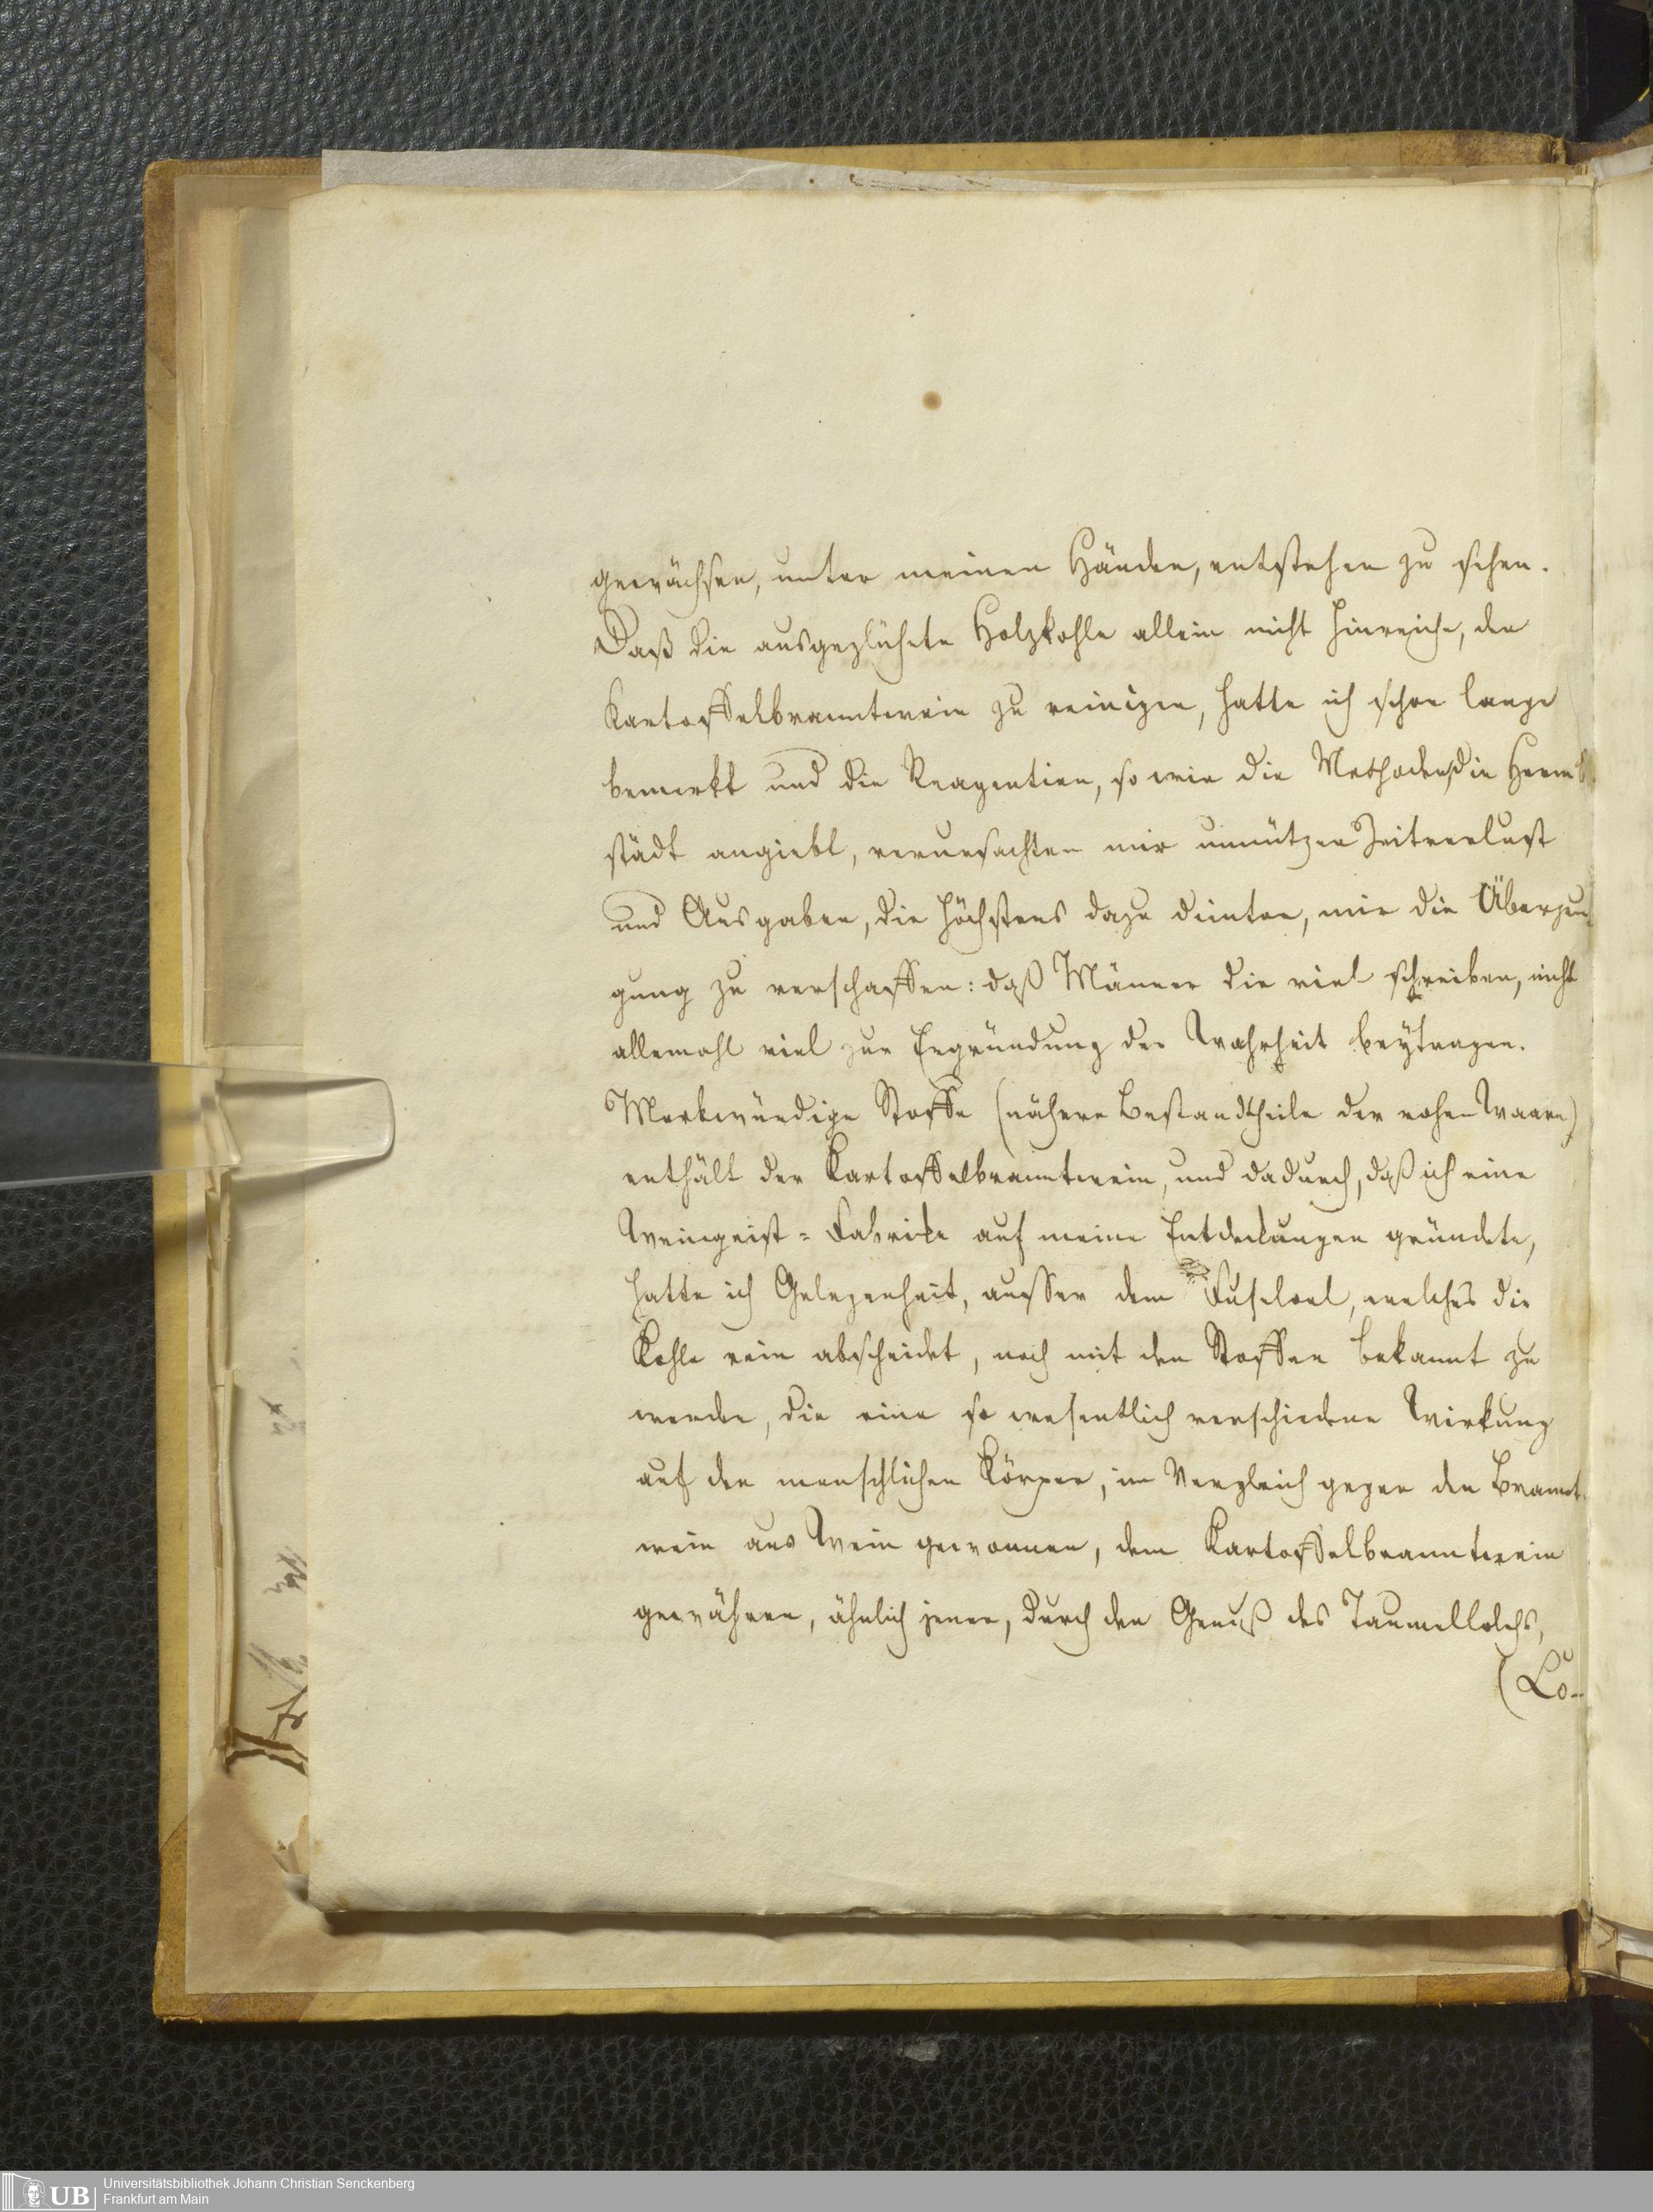 gewächsen, unter meinen Händen, entstehen zu sehen.
Daß die ausgeglühete Holzkohle allein nicht hinreiche, den
Kartoffelbranntwein zu reinigen, hatte ich schon lange
bemerkt und die Reagentien, so wie die Methoden, die Hermb
städt angiebt, verursachten mir unnützen Zeitverlust
und Ausgaben, die höchstens dazu dienten, mir die Überzeu
gung zu verschaffen: daß Männer die viel schreiben, nicht
allemahl viel zur Ergründung der Wahrheit beytragen.
Merkwürdige Stoffe (nähere Bestandtheile der rohen Waare)
enthält der Kartoffelbranntwein, und dadurch, daß ich eine
Weingeist-Fabrike auf meine Entdeckungen gründete,
hatte ich Gelegenheit, ausser dem Fuseloel, welches die
Kohle rein abscheidet, noch mit den Stoffen bekannt zu
werden, die eine so wesentlich verschiedene Wirkung
auf den menschlichen Körper, im Vergleich gegen den Brannt-
wein aus Wein gewonnen, dem Kartoffelbranntwein
gewähren, ähnlich jener, durch den Genuß des Taumellolchs,
(Lo-
UB
Universitätsbibliothek Johann Christian Senckenberg
Frankfurt am Main